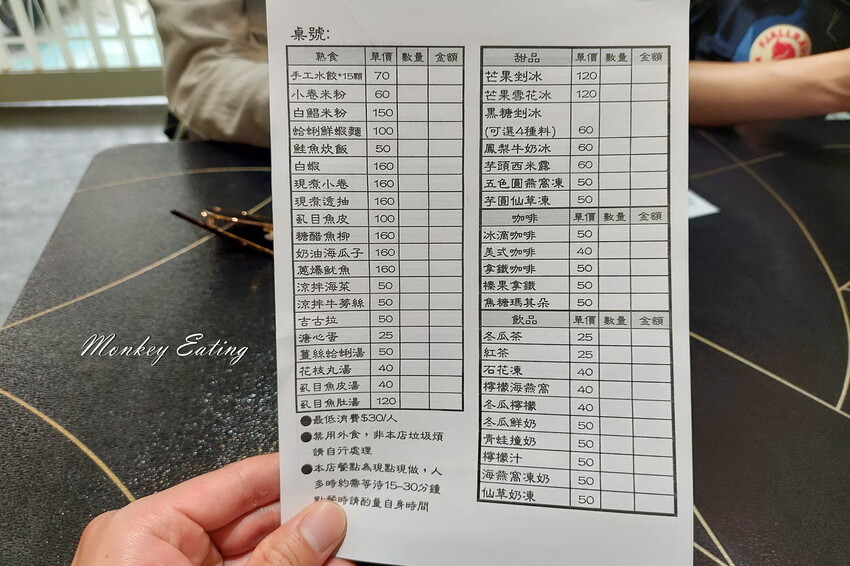 桌號:
熟食 單價 數量 金額
手工水餃*15顆 70
小卷米粉 60
白鯧米粉 150
蛤蜊鮮蝦麵 100
鮭魚炊飯 50
白蝦 160
現煮小卷 160
現煮透抽 160
虱目魚皮 100
糖醋魚柳 160
奶油海瓜子 160
蔥爆魷魚 160
涼拌海菜 50
涼拌牛蒡絲 50
吉古拉 50
溏心蛋 25
薑絲蛤蜊湯 50
花枝丸湯 40
虱目魚皮湯 40
虱目魚肚湯 120
●最低消費$30/人
●禁用外食，非本店垃圾煩
請自行處理
●本店餐點為現點現做，人
多時約需等待15-30分鐘
點餐時請酌量自身時間
甜品 單價 數量 金額
芒果剉冰 120
芒果雪花冰 120
黑糖剉冰
(可選4種料) 60
鳳梨牛奶冰 60
芋頭西米露 60
五色圓燕窩凍 50
芋圓仙草凍 50
咖啡 單價 數量 金額
冰滴咖啡 50
美式咖啡 40
拿鐵咖啡 50
榛果拿鐵 50
焦糖瑪其朵 50
飲品 單價 數量 金額
冬瓜茶 25
紅茶 25
石花凍 40
檸檬海燕窩 40
冬瓜檸檬 40
冬瓜鮮奶 50
青蛙撞奶 50
檸檬汁 50
海燕窩凍奶 50
仙草奶凍 50
Monkey Eating